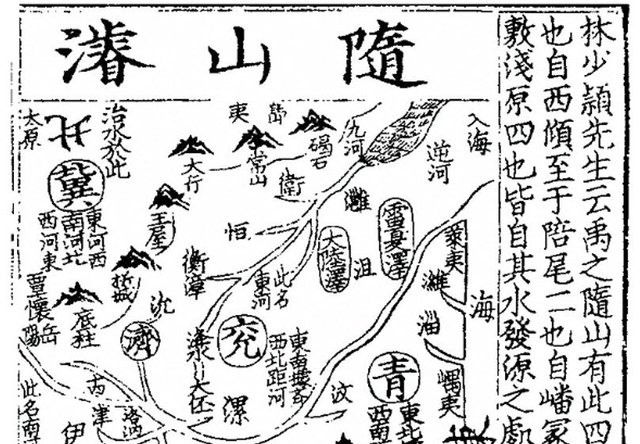 隨山濬
林少頴先生云禹之隨山有此四
也自西傾至于陪尾二也自嶓冢
敷淺原四也皆自其水發源之處
入海
逆河
九河
碣石
島夷
常山
大行
衛
恒
治水於此
北
太原
冀
東河西
南河北
西河東
王屋
析城
底柱
覃懷
岳陽
衡漳
沇
濟
此名
東河
大陸澤
雷夏澤
灉
沮
萊夷
濰
淄
海
嵎夷
兖
東南據濟
西北距河
漯
洚水
大伾
汶
青
東北
西南
孟津
洛汭
伊
此名南